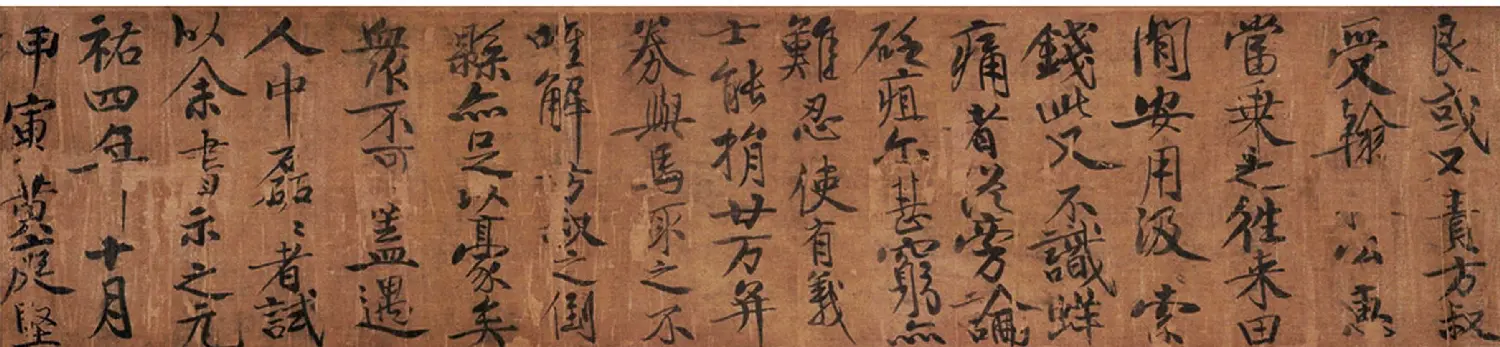 良或又責方叔
受翰公惠
當乗之往来田
閒安用汲索
錢此又不識蛘
痛者從旁論
砭疽尔甚窮亦
難忍使有義
士能捐廿万并
券與馬取之不
唯解方叔之倒
縣亦足以豪矣
衆不可盖遇
人中磊々者試
以余書示之元
祐四年十月
甲寅黄庭堅